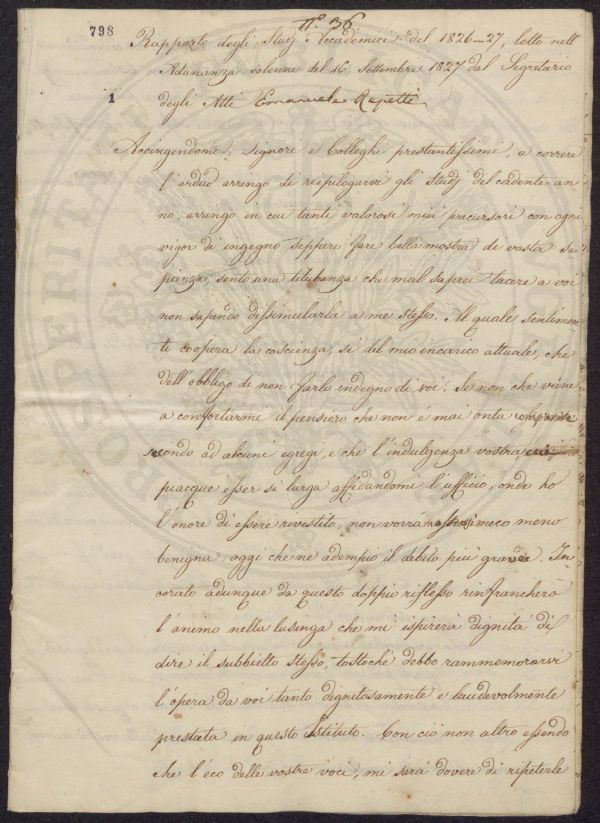 798
N.° 36
Rapporto degli Studj Accademici del 1826-27, letto nell'
Adunanza solenne del 16 Settembre 1827 dal Segretario
1
degli Atti Emanuele Repetti
Accingendomi, Signori e Colleghi prestantissimi, a correre
l'arduo arringo di riepilogarvi gli studj del cadente an-
no; arringo in cui tanti valorosi miei precursori con ogni
vigor di ingegno seppero fare bella mostra di vostra sa-
pienza, sento una titubanza che mal saprei tacere a voi
non sapendo dissimularla a me stesso. Al quale sentimen-
to coopera la coscienza, sì del mio incarico attuale, che
dell'obbligo di non farlo indegno di voi. Se non che viene
a confortarmi il pensiero che non è mai onta
secondo ad alcuni egregi, e che l'indulgenza vostra cui
piacque esser sì larga affidandomi l'ufficio, onde ho
l'onore di essere rivestito, non vorrà meco meno
benigna oggi che ne adempio il debito più grave. In-
corato adunque da questo doppio riflesso rinfrancherò
l'animo nella lusinga che mi ispirerà dignità di
dire il subbietto stesso, tostochè debbo rammemorarvi
l'opera da voi tanto dignitosamente e laudevolmente
prestata in questo Istituto. Con ciò non altro essendo
che l'eco delle vostre voci, mi sarà dovere di ripeterle